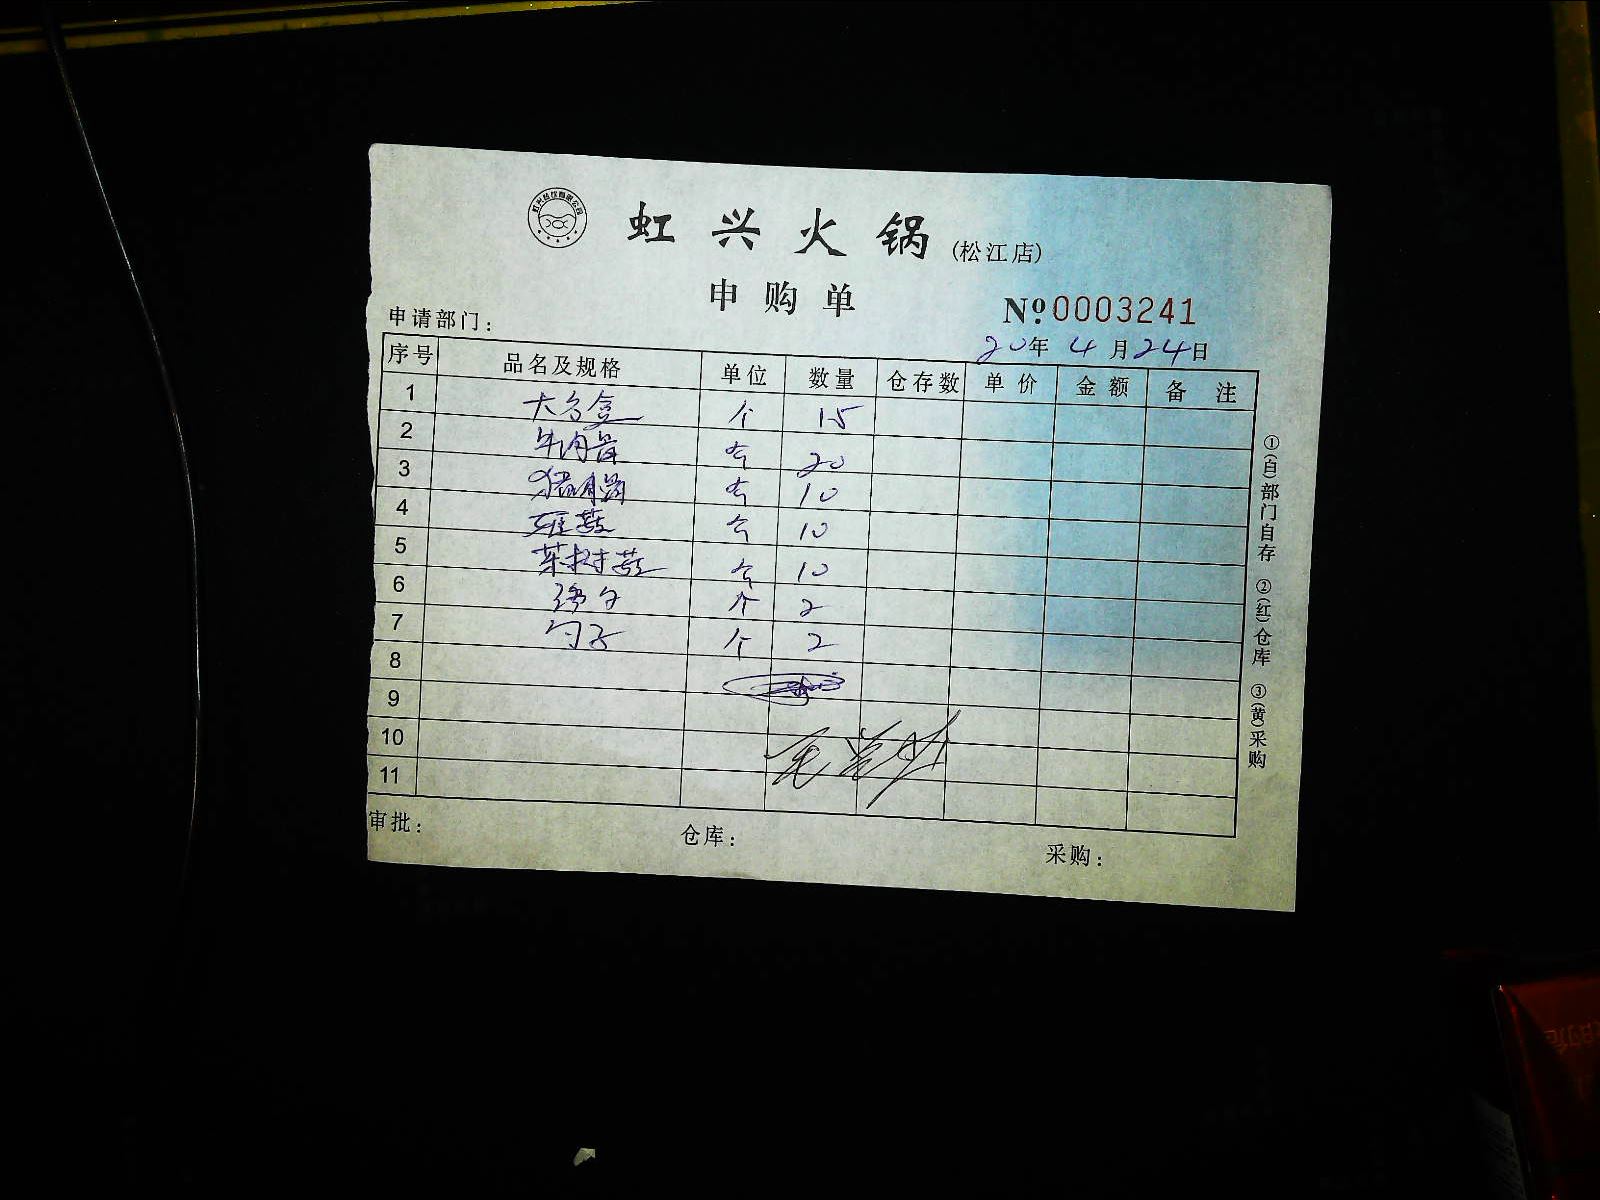 虹兴火锅 (松江店)
申购单
№ 0003241
申请部门:
20年 4月 24日
序号 品名及规格 单位 数量 仓存数 单价 金额 备注
1 大方盒 个 15
2 个 20
3 个 10
4 个 10
5 茶树菇 个 10
6 个 2
7 勺子 个 2
8
9
10
11
审批: 仓库: 采购:
①(白)部门自存 ②(红)仓库 ③(黄)采购